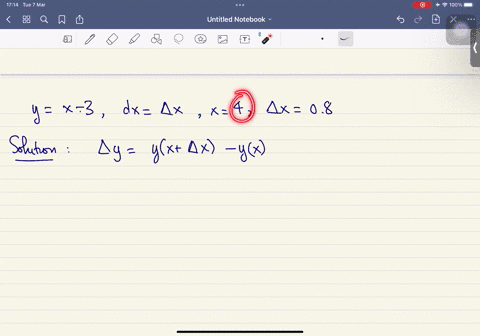 17:14 Tue 7 Mar
100%
Untitled Notebook
y = x-3, dx = Δx , x = 4, Δx = 0.8
Solution : Δy = y(x+ Δx) - y(x)